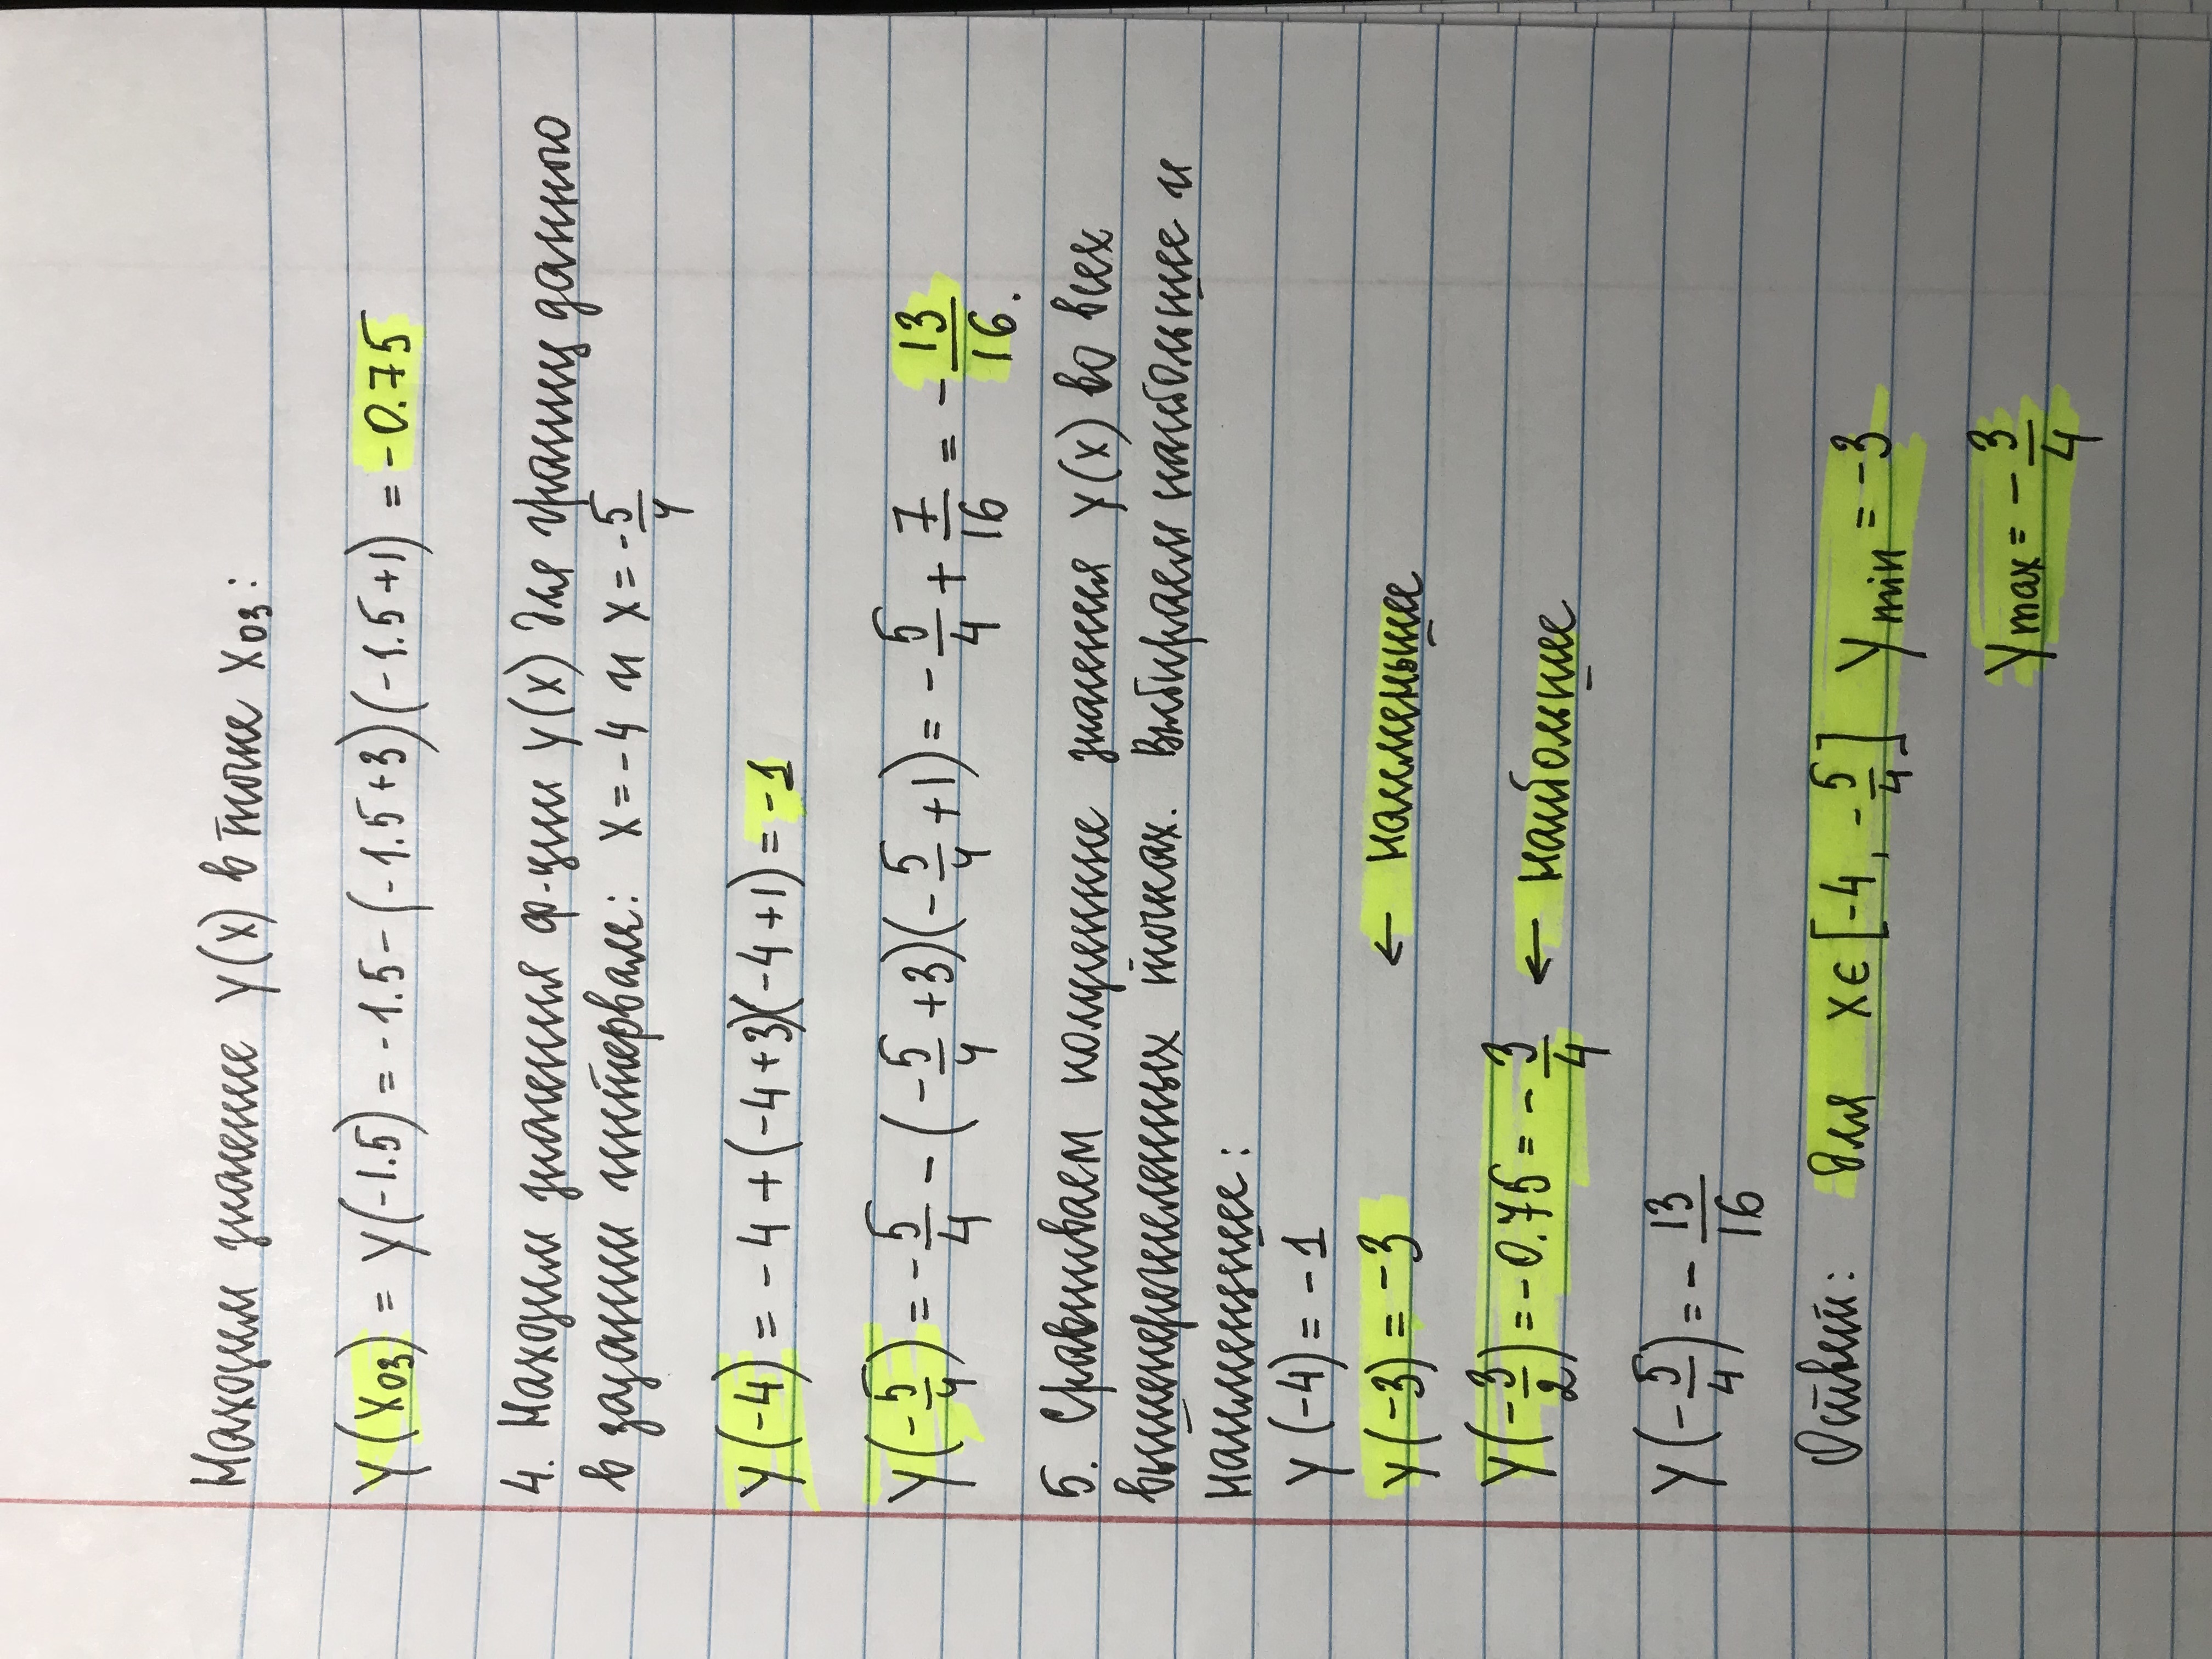 Находим значение y(x) в точке x₀₃:
y(x₀₃) = y(-1.5) = -1.5 - (-1.5+3)(-1.5+1) = -0.75
4. Находим значения ф-ции y(x) для границ данного
в задании интервала: x = -4 и x = -5/4
y(-4) = -4 + (-4+3)(-4+1) = -1
y(-5/4) = -5/4 - (-5/4 + 3)(-5/4 + 1) = -5/4 + 7/16 = -13/16.
5. Сравниваем полученные значения y(x) во всех
вышеперечисленных точках. Выбираем наибольшее и
наименьшее:
y(-4) = -1
y(-3) = -3 ← наименьшее
y(-3/2) = -0.75 = -3/4 ← наибольшее
y(-5/4) = -13/16
Ответ: Для x ∈ [-4, -5/4] ymin = -3
ymax = -3/4